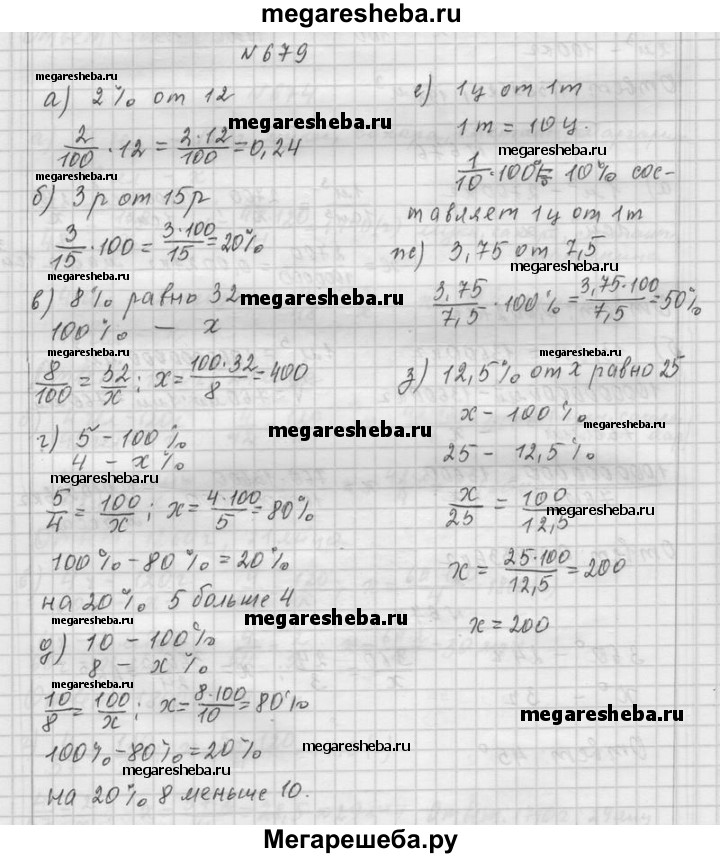 megaresheba.ru
№679
megaresheba.ru
а) 2% от 12
megaresheba.ru
2/100 · 12 = 2·12/100 = 0,24
megaresheba.ru
б) 3 р от 15 р
3/15 · 100 = 3·100/15 = 20%
megaresheba.ru
в) 8% равно 32
megaresheba.ru
100% — x
8/100 = 32/x; x = 100·32/8 = 400
г) 5 - 100%
megaresheba.ru
4 - x%
megaresheba.ru
5/4 = 100/x; x = 4·100/5 = 80%
100% - 80% = 20%
на 20% 5 больше 4
megaresheba.ru
д) 10 - 100%
8 - x%
megaresheba.ru
10/8 = 100/x; x = 8·100/10 = 80%
100% - 80% = 20%
megaresheba.ru
megaresheba.ru
на 20% 8 меньше 10.
е) 1ц от 1т
1т = 10ц.
megaresheba.ru
1/10 · 100% = 10% сос-
тавляет 1ц от 1т
ж) 3,75 от 7,5
megaresheba.ru
3,75/7,5 · 100% = 3,75·100/7,5 = 50%
megaresheba.ru
з) 12,5% от x равно 25
x - 100%
megaresheba.ru
25 - 12,5%
x/25 = 100/12,5
megaresheba.ru
x = 25·100/12,5 = 200
megaresheba.ru
x = 200
megaresheba.ru
Мегарешеба.ру